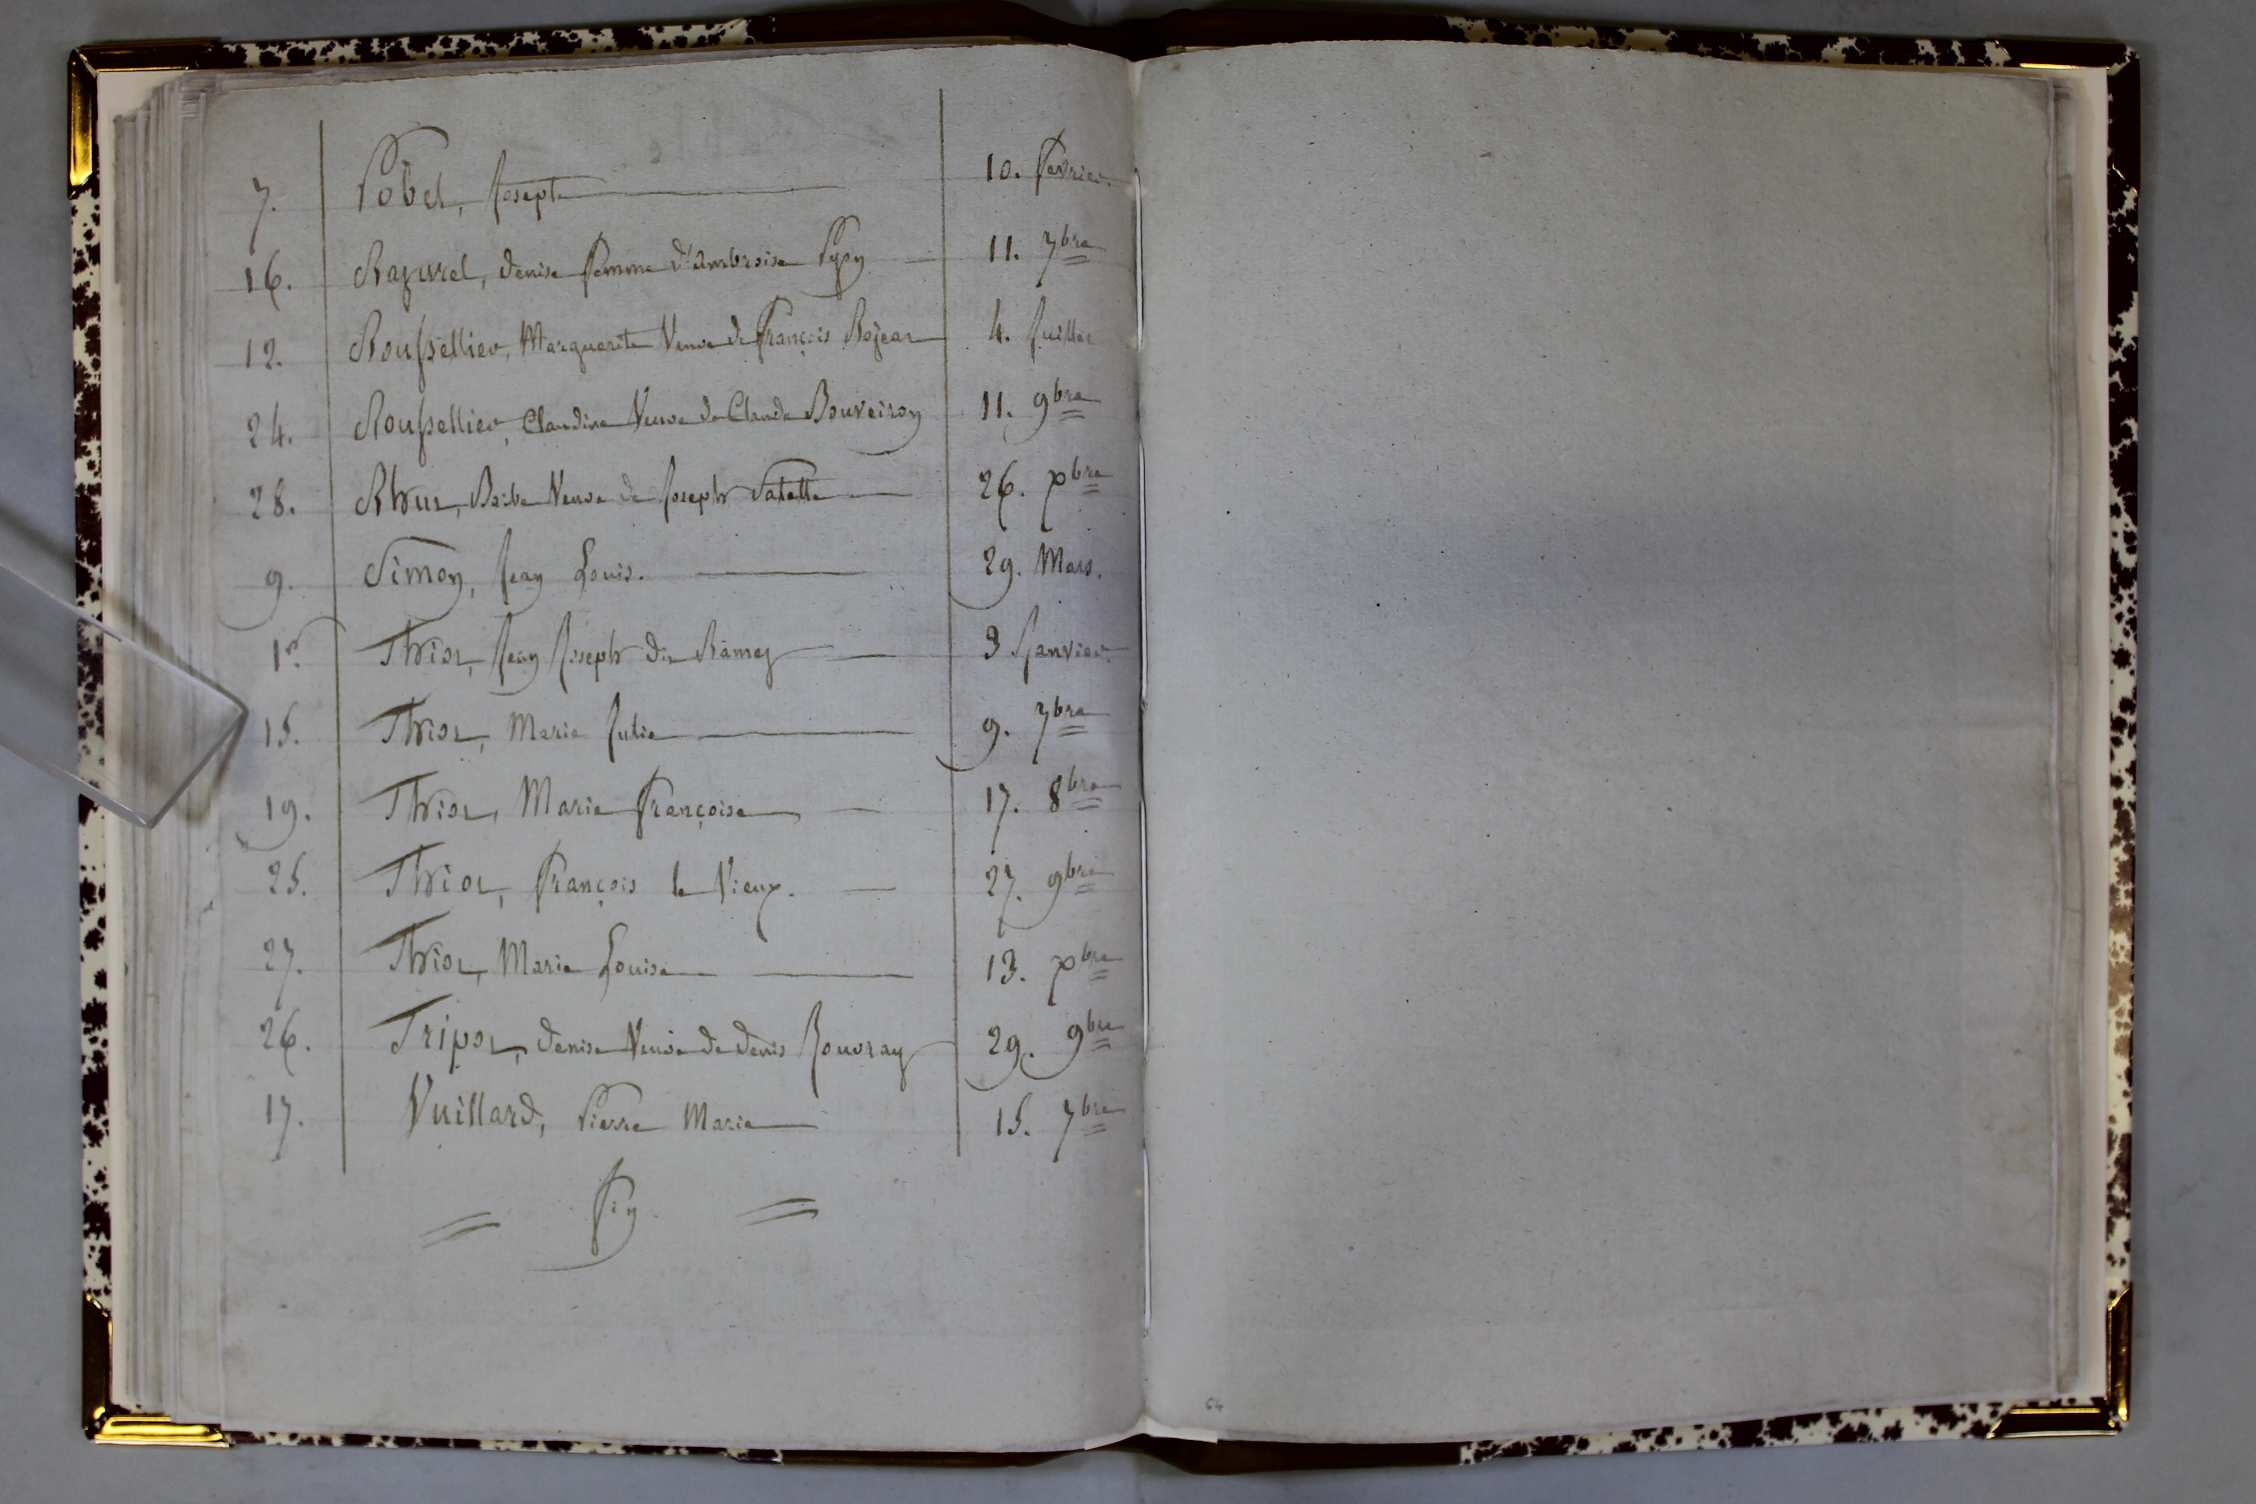 7. Pobel, Joseph 10. fevrier.
16. Ragurel, denise femme d'ambroise 11. 7bre
12. Roussellier, Marguerite Veuve de françois Rojear 4. Juillet
24. Roussellier, Claudine Veuve de Claude Bouveiron 11. 9bre
28. Barbe Veuve de Joseph 26. xbre
9. Simon, Jean Louis. 29. Mars.
1er Jean Joseph dit Ramey 3 Janvier.
15. Marie Julie 9. 7bre
19. Marie françoise 17. 8bre
25. françois le Vieux. 27. 9bre
27. Marie Louise 13. xbre
26. Tripot, denise Veuve de denis Bouvray 29. 9bre
17. Vuillard, Pierre Marie 15. 7bre
fin
64